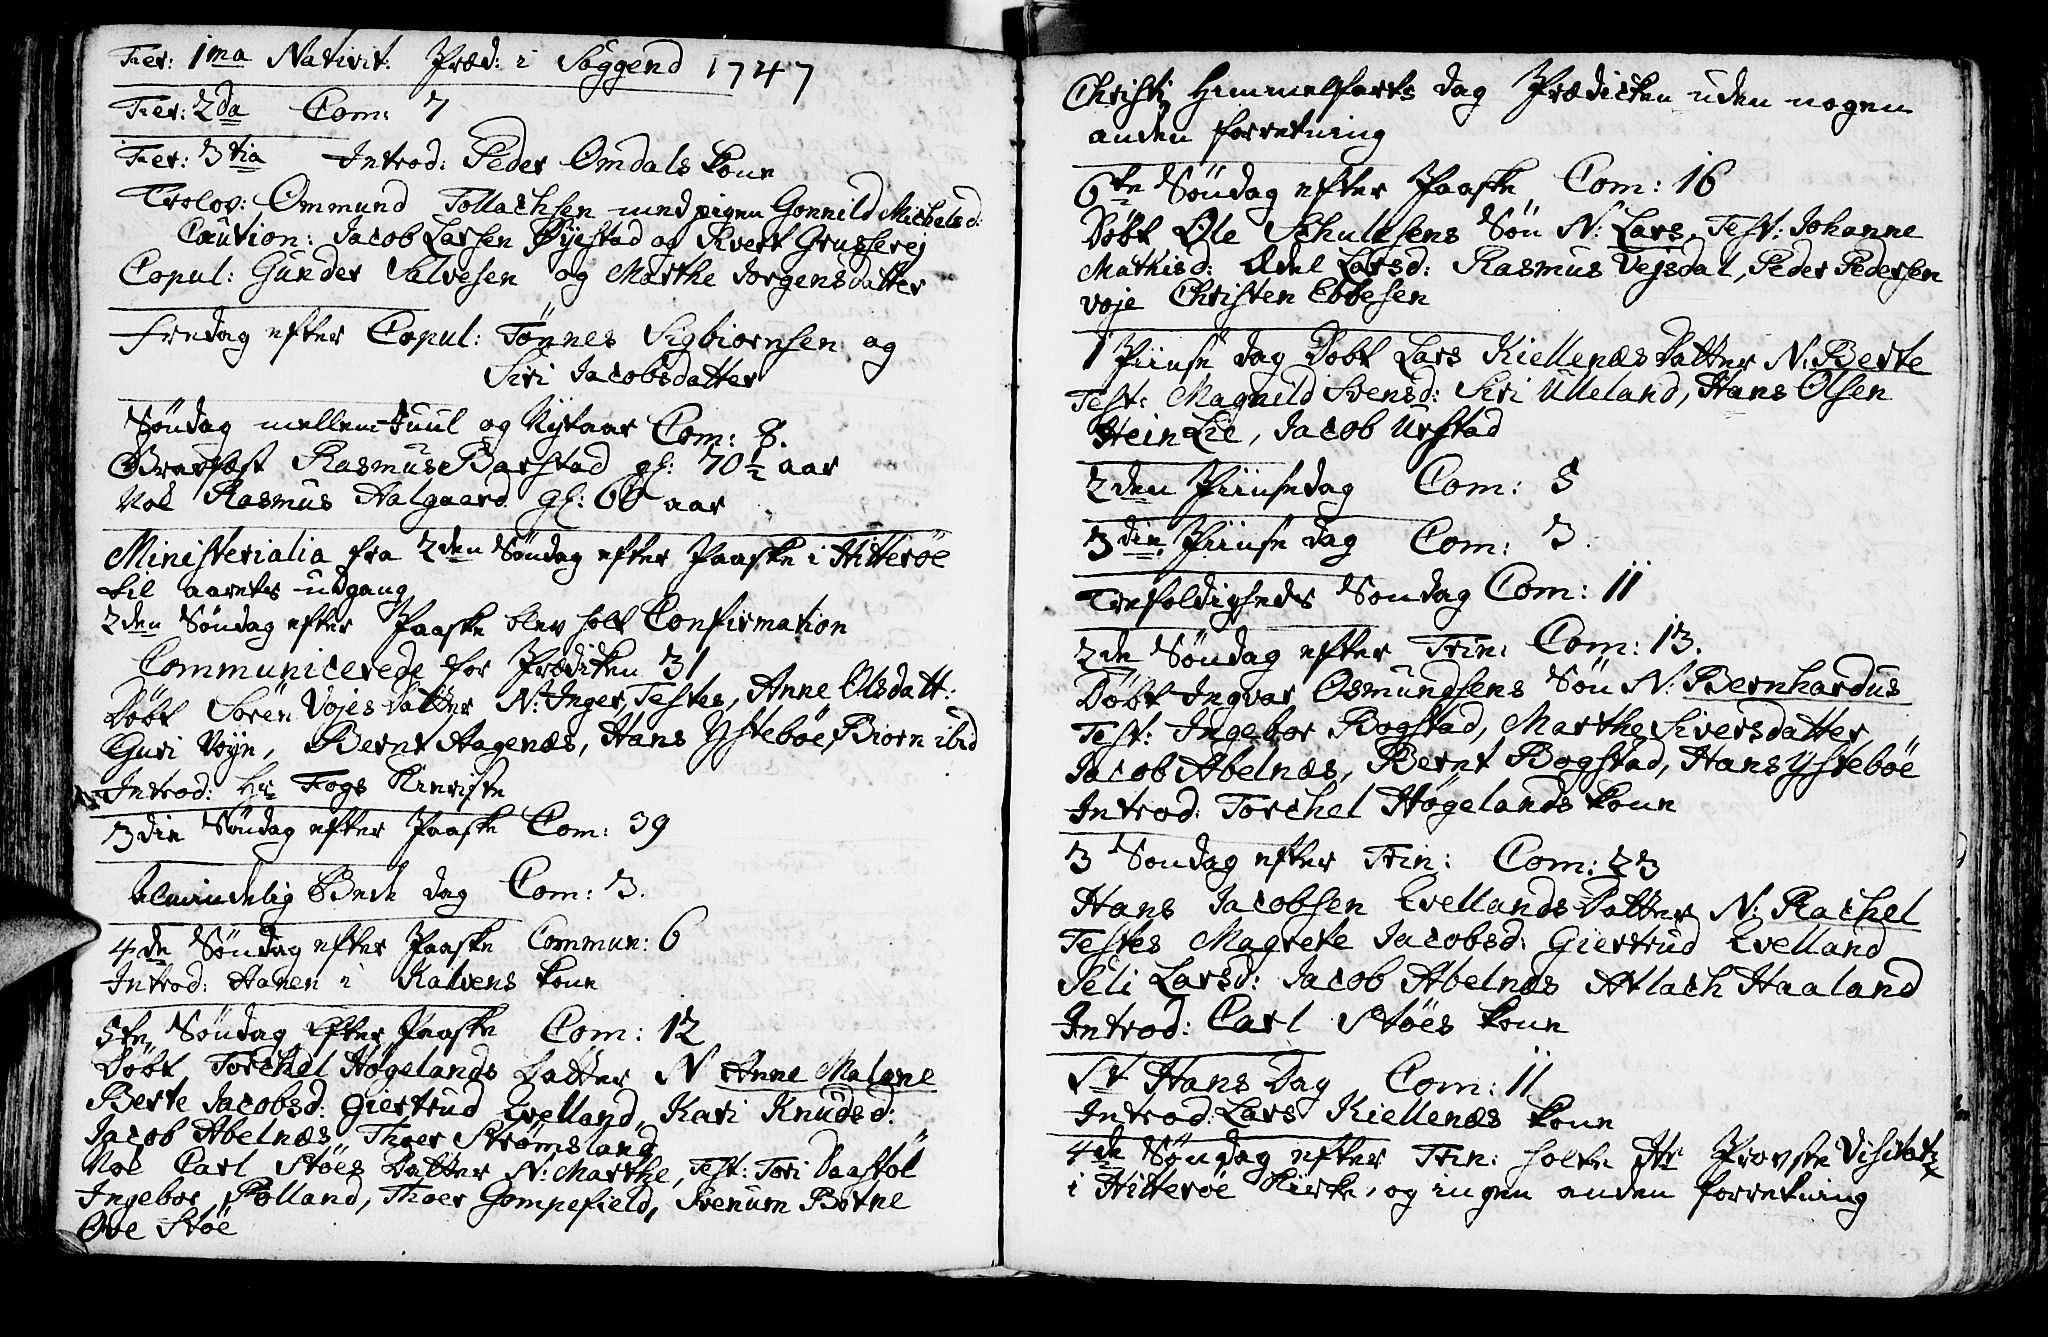 Fer: 1ma Nativit: Præd: i Soggend 1747
Fer: 2da Com: 7
Fer: 3tia Introd: Peder Omdals kone
Trolov: Ommund Tollachsen med pigen Gonnild Michelsd:
Caution: Jacob Larsen Øyestad og Sivert
Copul: Gunder Salvesen og Marthe Jorgensdatter
Fredag efter Copul: Tønnes Sigbiornsen og
Siri Jacobsdatter
Søndag mellem Juul og Nytaar Com: 8.
Rasmus Barstad gl: 70½ aar
Nok Rasmus Aalgaard gl: 66 aar
Ministerialia fra 2den Søndag efter Paaske i Hitterøe
til aarets udgang
2den Søndag efter Paaske blev holt Confirmation
Communicerede for Prædiken 31
Døbt Søren Vojes Datter N: Inger, Testes, Anne Olsdatt:
Guri Vojn, Bernt Aagenæs, Hans Ystebøe, Biorn ibid
Introd: Hr Fogs Kieriste
3die Søndag efter Paaske Com: 39
Almindelig Bede dag Com: 3.
4de Søndag efter Paaske Commun: 6
Introd: Hanen i Kalvens kone
5te Søndag efter Paaske Com: 12
Døbt Torchel Høgelands Datter N Anne Malene
Berte Jacobsd: Giertrud Evelland, Kari Knudsd:
Jacob Abelnæs, Thoer Strømsland
Nok Carl Støes Datter N: Marthe, Test: Tori Daastøl
Ingebor Polland, Thoer Gompefield, Svenum Botne
Ove Støe
Christi Himmelfarts dag Prædicken uden nogen
anden forretning
6te Søndag efter Paaske Com: 16
Døbt Ole Schulesens Søn N: Lars, Test: Johanne
Mathisd: Adel Larsd: Rasmus Vejsdal, Peder Pedersen
voje Christen Ebbesen
1 Piinse dag Døbt Lars Kiellenæs Datter N: Berte
Test: Magnild Svensd: Siri Ulleland, Hans Olsen
Stein Lie, Jacob Urstad
2den Piinsedag Com: 5
3die Piinse dag Com: 3.
Trefoldigheds Søndag Com: 11
2de Søndag efter Trin: Com: 13.
Døbt Ingvar Osmundsens Søn N: Bernhardus
Test: Ingebor Bogstad, Marthe Siversdatter,
Jacob Abelnæs, Bernt Bogstad, Hans Ystebøe
Introd: Torchel Høgelands kone
3 Søndag efter Trin: Com: 23
Hans Jacobsen Evellands Datter N: Rachel
Testes Magrete Jacobsd: Giertrud Evelland
Seli Larsd: Jacob Abelnæs Atlach Haaland
Introd: Carl Støes kone
St Hans Dag Com: 11
Introd: Lars Kiellenæs kone
4de Søndag efter Trin: holte Hr Provste Visitatz
i Hitterøe Kirke, og ingen anden forretning